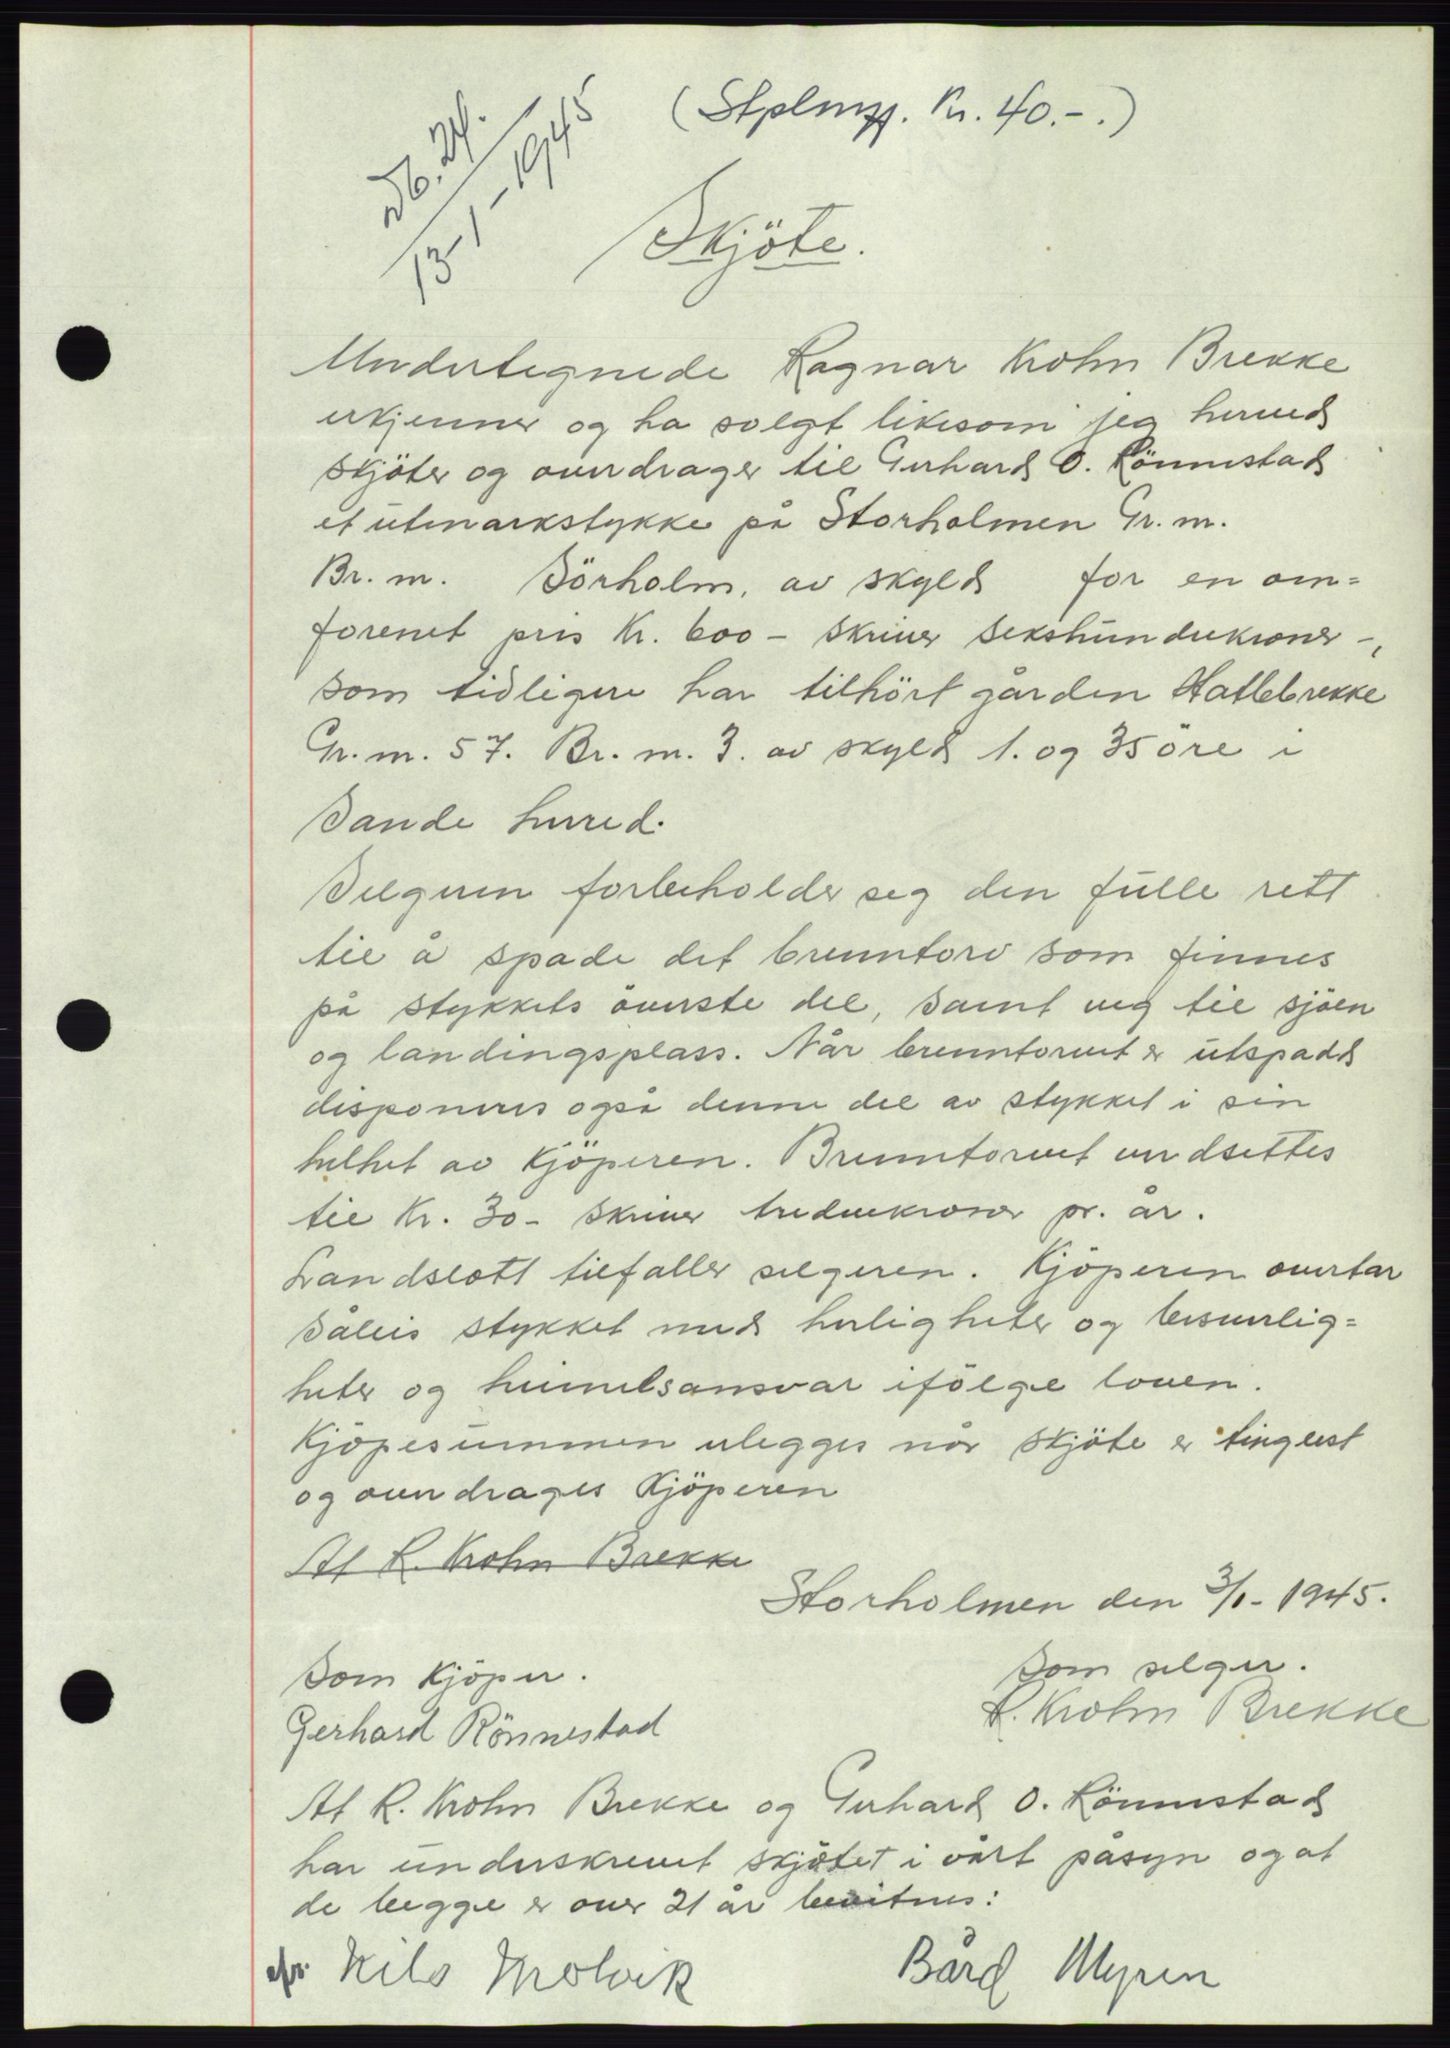 (Stplmgj. Kr. 40.-.)
Db. 24.
13-1-1945
Skjöte.
Undertegnede Ragnar Krohn Brekke
erkjenner og ha solgt likesom jeg herved
skjöter og overdrager til Gerhard O. Rönnestad
et utmarkstykke på Storholmen Gr. m.
Br. m. Sörholm, av skyld for en om=
forenet pris Kr. 600 - skriver sekshundrekroner -,
som tidligere har tilhört gården Hatlebrekke
Gr. m. 57. Br. m. 3. av skyld 1. og 35 öre i
Sande herred.
Selgeren forbeholder seg den fulle rett
til å spade det brenntorv som finnes
på stykkets överste del, samt veg til sjöen
og landingsplass. Når brenntorvet er utspadd
disponeres også denne del av stykket i sin
helhet av kjöperen. Brenntorvet verdsettes
til Kr. 30- skriver tredvekroner pr. år.
Landslott tilfaller selgeren. Kjöperen overtar
således stykket med herligheter og besverlig=
heter og heimelsansvar ifölge loven.
Kjöpesummen erlegges når skjöte er tinglest
og overdrages Kjöperen
At R. Krohn Brekke
Storholmen den 3/1- 1945.
Som kjöper.
Som selger.
Gerhard Rönnestad
R. Krohn Brekke
At R. Krohn Brekke og Gerhard O. Rönnestad
har underskrevet skjötet i vårt påsyn og at
de begge er over 21 år bevitnes:
Nils Molvik
Bård Myren